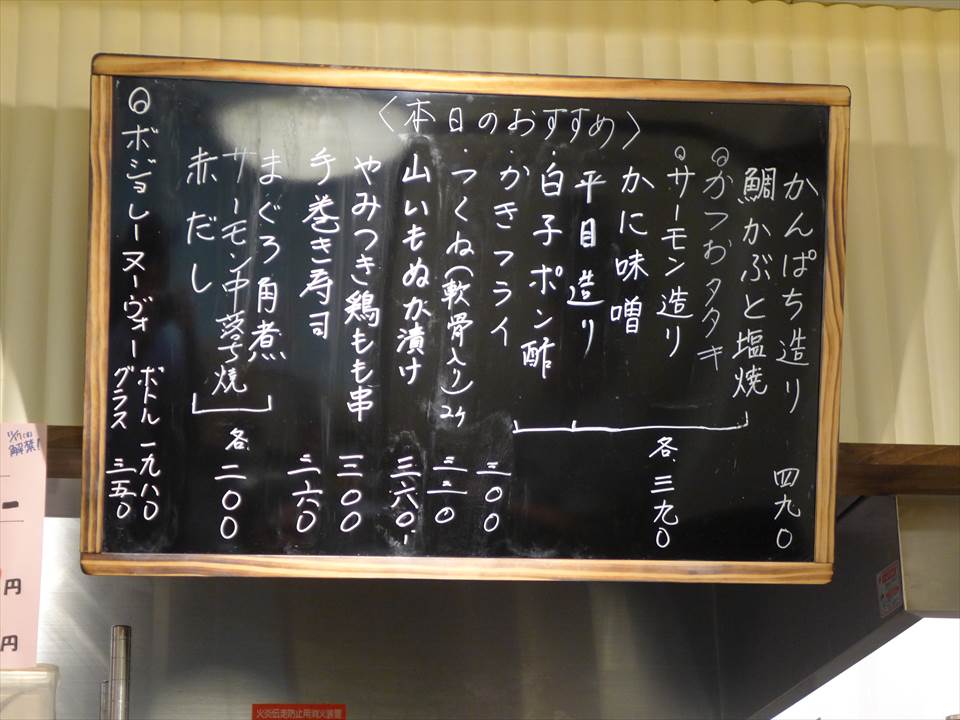 〈本日のおすすめ〉
かんぱち造り 四九〇
鯛かぶと塩焼
◎かつおタタキ
◎サーモン造り
かに味噌
平目造り
・白子ポン酢
各三九〇
・かきフライ 三〇〇
・つくね(軟骨入り)2ヶ 三二〇
山いもぬか漬け 三六〇
やみつき鶏もも串 三〇〇
手巻き寿司 二六〇
まぐろ角煮
サーモン中落ち焼
各二〇〇
赤だし
◎ボジョレーヌーヴォー
ボトル 一九八〇
グラス 三五〇
解禁!
円
円
火炎伝走防止用消火装置